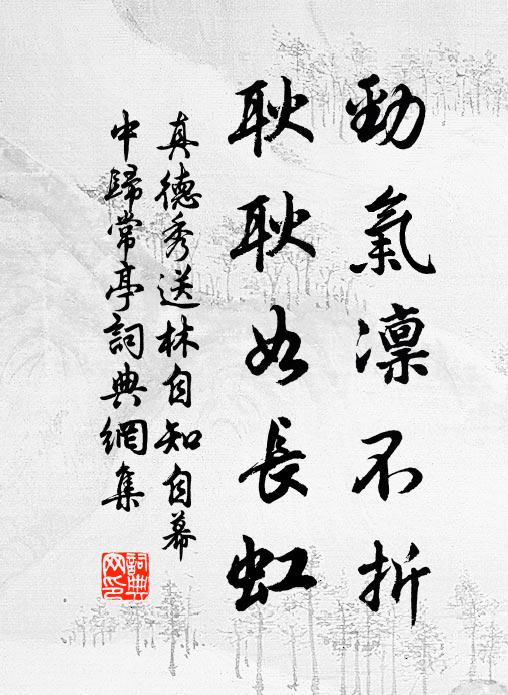 勁氣凛不折
耿耿如長虹
真德秀送林自知自幕
中歸常亭詞典網集
詞典網印